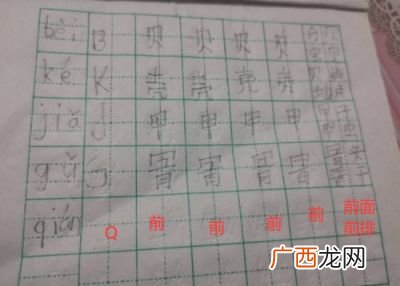 bèi B 贝 贝 贝 贝
ké K 壳 壳 壳 壳
jiǎ J 甲 甲 甲 甲
gǔ G 骨 骨 骨 骨 骨头 骨干
qián Q 前 前 前 前 前面 前排
广西龙网